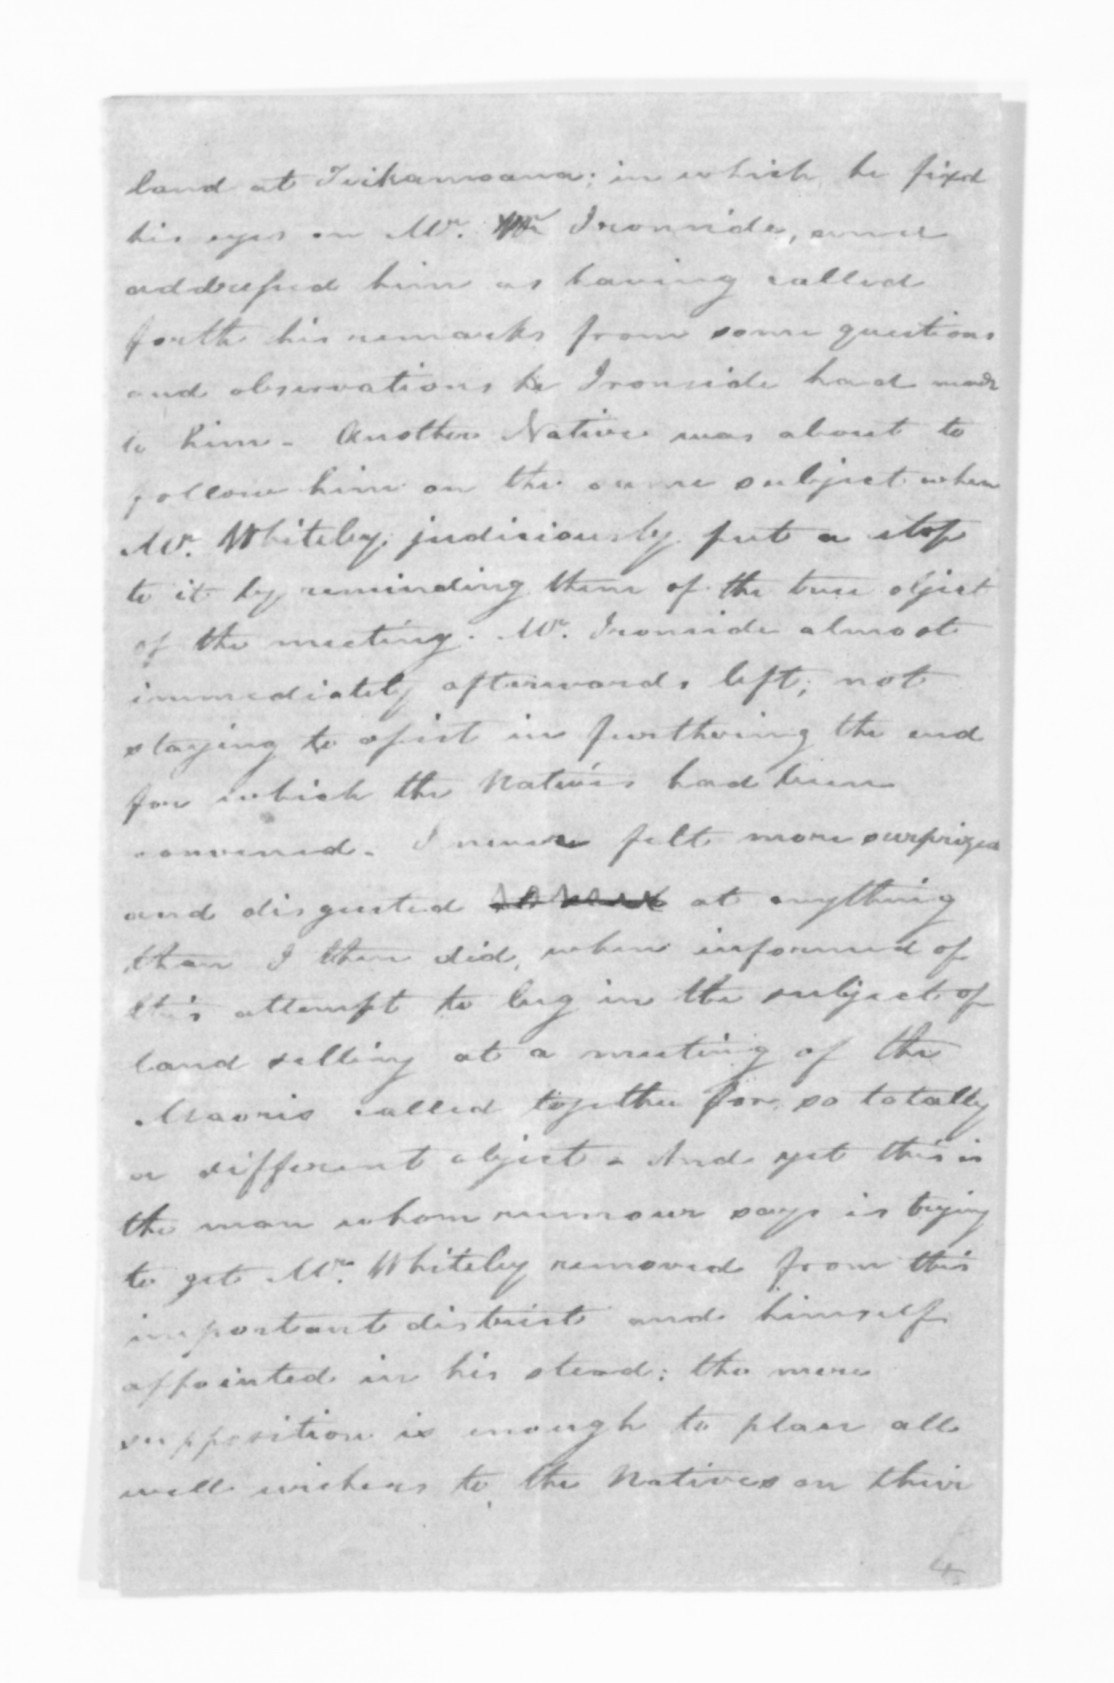 land at Teikamoana; in which he fixed
his eyes on Mr. Ironside, and
addressed him as having called
forth his remarks from some questions
and observations he Ironside had made
to him - Another Native was about to
follow him on the same subject when
Mr. Whiteley judiciously put a stop
to it by reminding them of the true object
of the meeting. Mr. Ironside almost
immediately afterwards left; not
staying to assist in furthering the end
for which the Natives had been
convened. I never felt more surprized
and disgusted at anything
than I then did, when informed of
this attempt to lug in the subject of
land selling at a meeting of the
Maoris called together for so totally
a different object - And yet this is
the man whom rumour says is trying
to get Mr. Whiteley removed from this
important district and himself
appointed in his stead: the mere
supposition is enough to place all
well wishers to the Natives on their
4